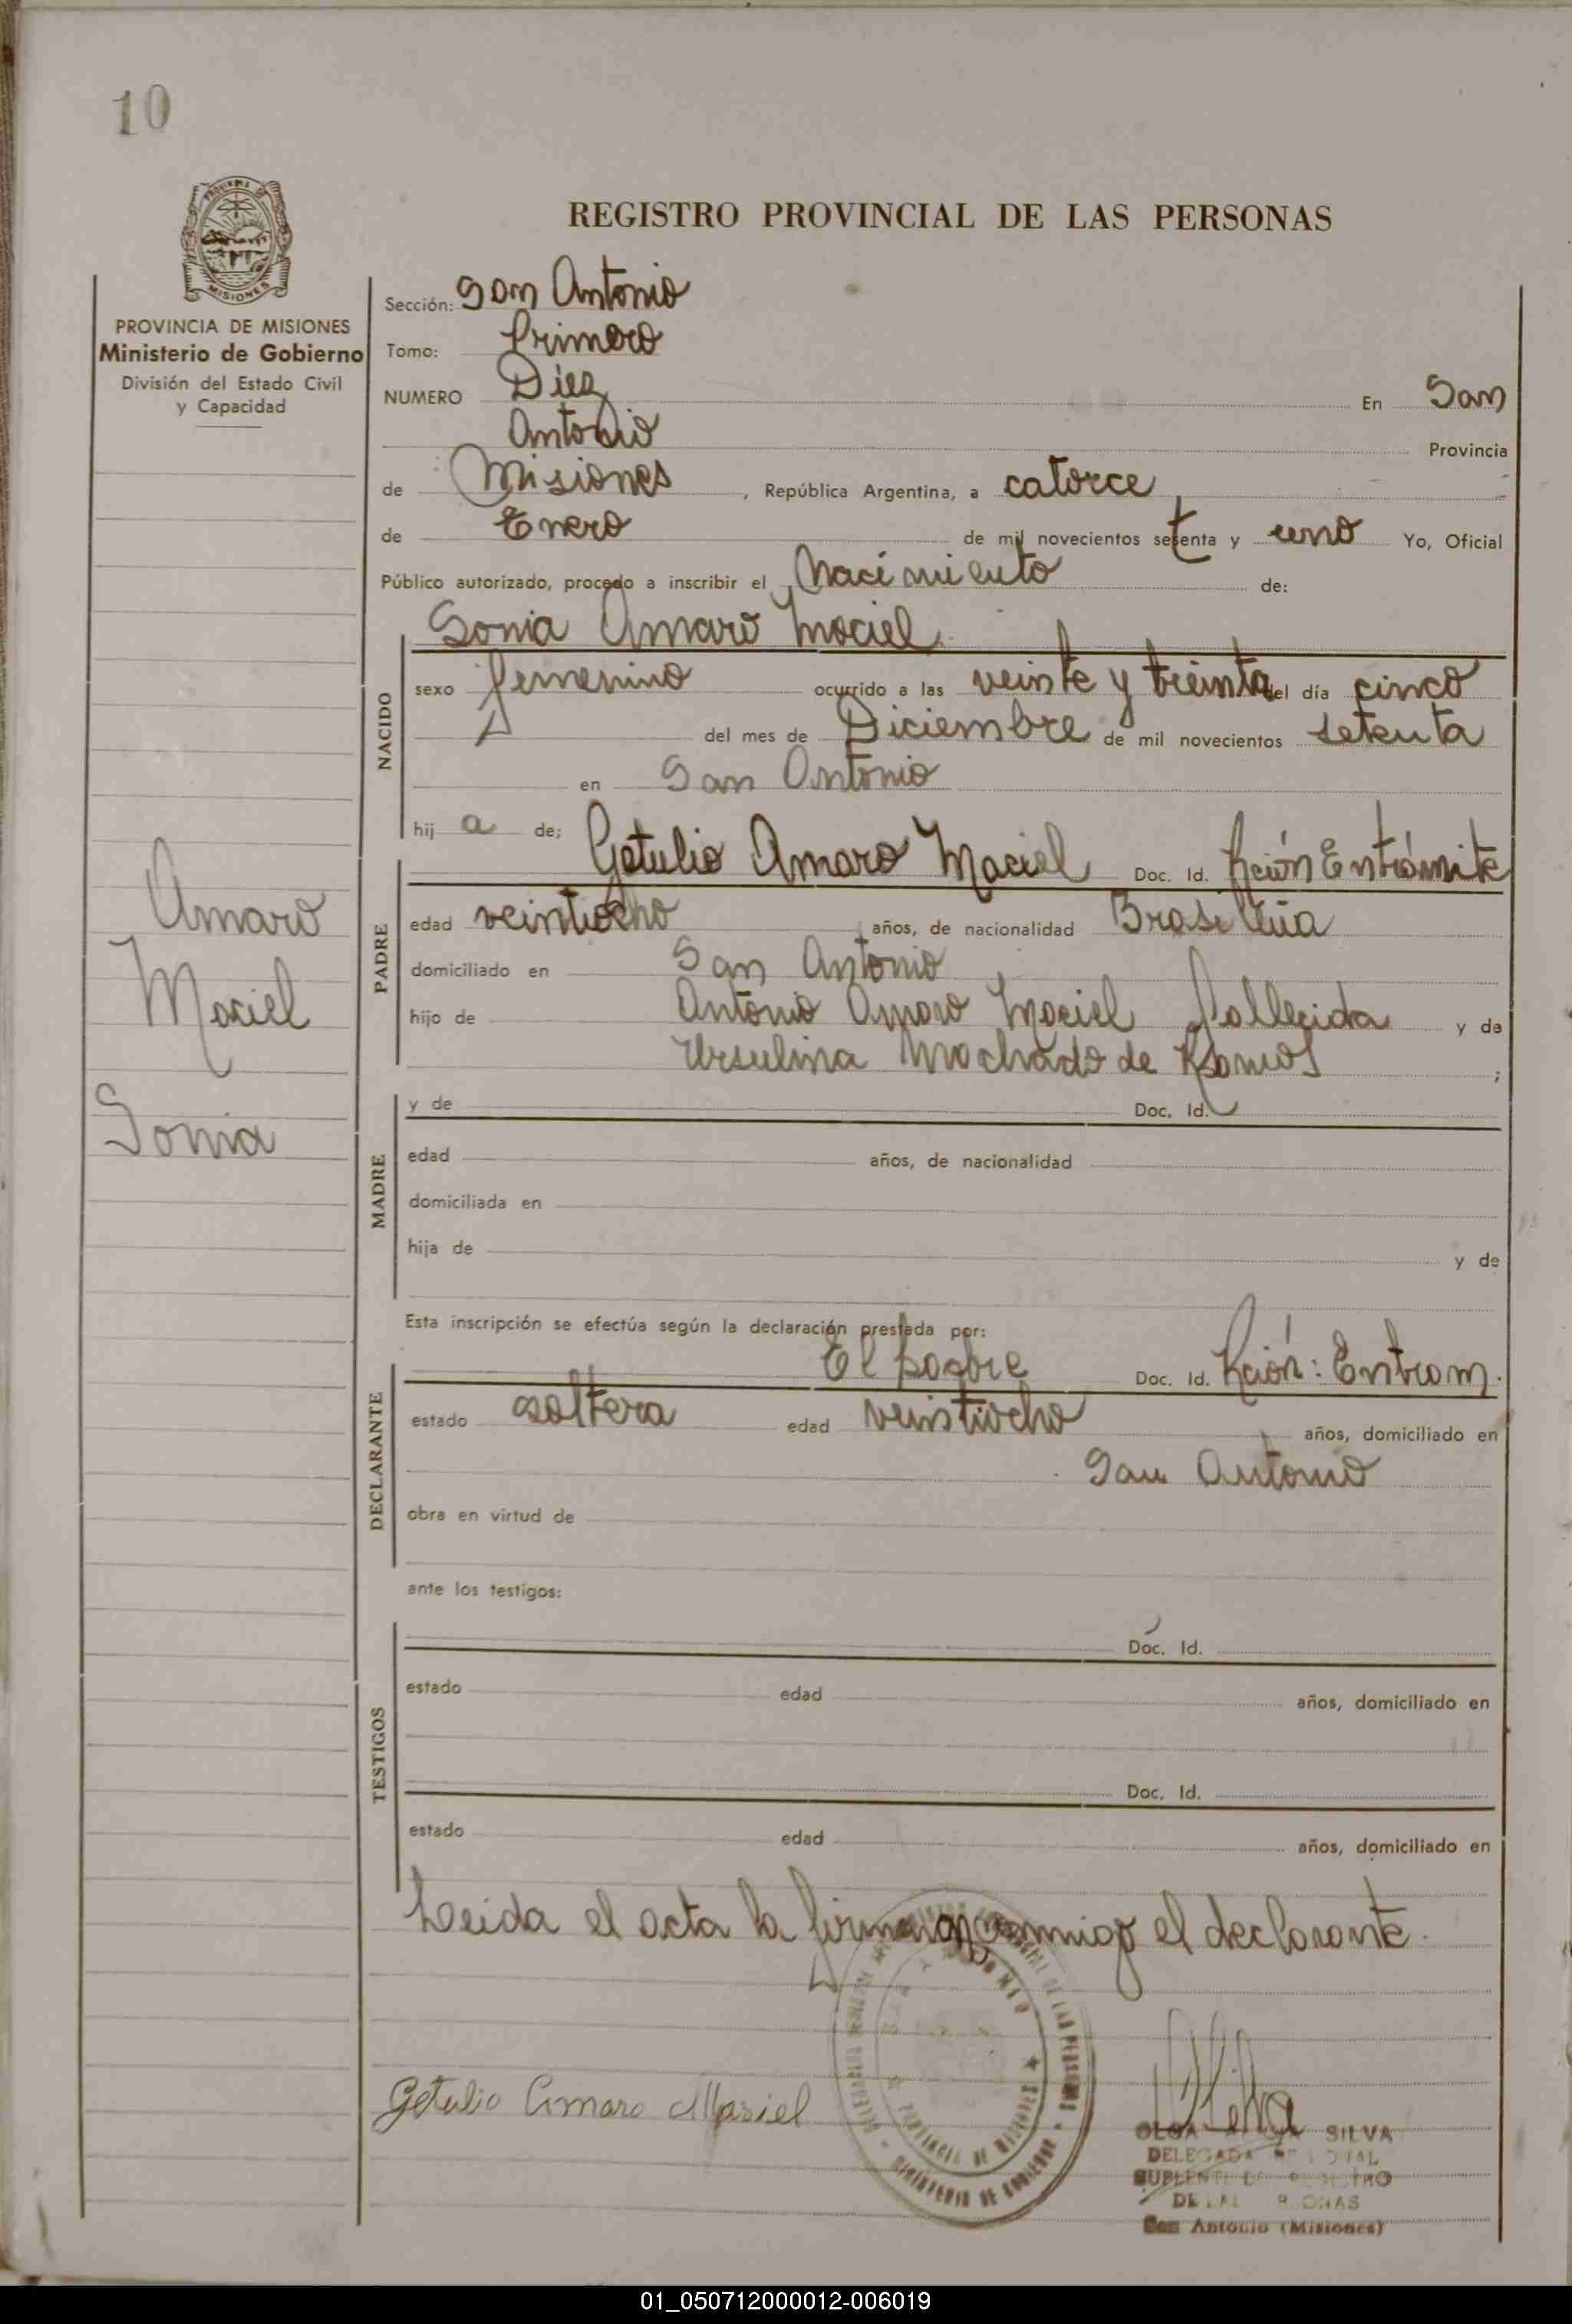 10
REGISTRO PROVINCIAL DE LAS PERSONAS
PROVINCIA DE MISIONES
Ministerio de Gobierno
División del Estado Civil
y Capacidad
Sección: San Antonio
Tomo: Primero
NUMERO Diez En San
Antonio Provincia
de Misiones, República Argentina, a catorce
de Enero de mil novecientos setenta y uno Yo, Oficial
Público autorizado, procedo a inscribir el Nacimiento de:
Sonia Amaro Maciel
NACIDO
sexo femenino ocurrido a las veinte y treinta del día cinco
del mes de Diciembre de mil novecientos setenta
en San Antonio
hij a de; Getulio Amaro Maciel Doc. Id. Rción Entrámite
PADRE
edad veintiocho años, de nacionalidad Brasileña
domiciliado en San Antonio
hijo de Antonio Amaro Maciel fallecida y de
Ursulina Machado de Ramos ;
Amaro
Maciel
Sonia
MADRE
y de Doc. Id.
edad años, de nacionalidad
domiciliada en
hija de y de
Esta inscripción se efectúa según la declaración prestada por:
DECLARANTE
El padre Doc. Id. Rción: Entram.
estado soltera edad veintiocho años, domiciliado en
San Antonio
obra en virtud de
ante los testigos:
TESTIGOS
Doc. Id.
estado edad años, domiciliado en
Doc. Id.
estado edad años, domiciliado en
Leida el acta la firman conmigo el declarante.
Getulio Amaro Masiel
OLGA SILVA
DELEGADA
SUPLENTE
San Antonio (Misiones)
PROVINCIA DE MISIONES
MINISTERIO DE GOBIERNO
01_050712000012-006019